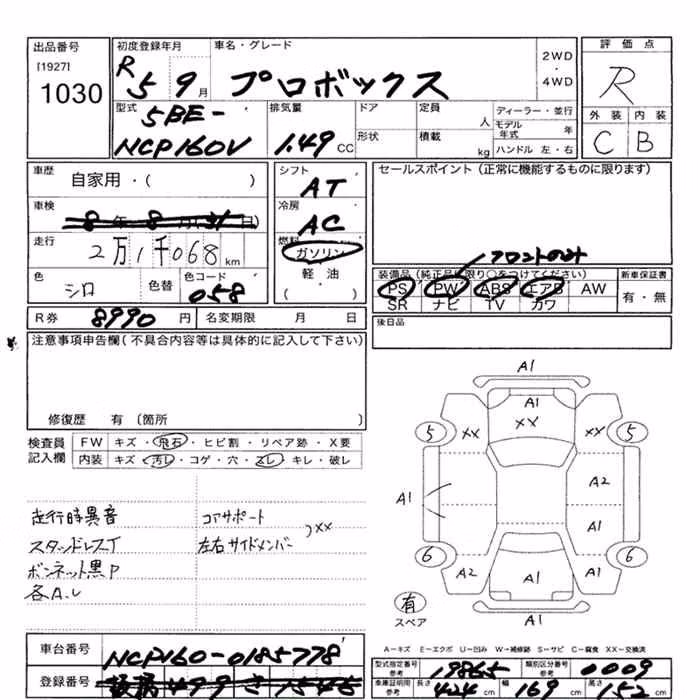 出品番号
[1927]
1030
初度登録年月
R 5 9 月
車名・グレード
プロボックス
2WD
・
4WD
評価点
R
外装 内装
C B
型式
5BE-
NCP160V
排気量
1.49 CC
ドア
形状
定員 人
積載 kg
ディーラー・並行
モデル年式 年
ハンドル 左・右
車歴
自家用・( )
車検
8年8月(31日)
走行
2万1千068 km
色
シロ
色替
色コード
058
シフト
AT
冷房
AC
燃料
ガソリン
軽・油
( )
セールスポイント(正常に機能するものに限ります)
フロントのみ
装備品(純正品に限り○をつけてください)
PS PW ABS エアB AW
SR ナビ TV カワ
新車保証書
有・無
R券 8990 円
名変期限 月 日
後日品
注意事項申告欄(不具合内容等は具体的に記入して下さい)
修復歴 有 〔箇所 〕
検査員記入欄
FW キズ・飛石・ヒビ割・リペア跡・X要
内装 キズ・汚レ・コゲ・穴・スレ・キレ・破レ
走行時異音
スタッドレスT
ボンネット黒P
各A.U
コアサポート
左右サイドメンバー
)XX
A1
A1
XX
5 XX XX 5
A1 A2
A1
6 6
A2 A1 A1
A1
有
スペア
A-キズ E-エクボ U-凹み W-補修跡 S-サビ C-腐食 XX-交換済
車台番号
NCP160-0185778
登録番号
499 さ 1545
型式指定番号 参考 19865
類別区分番号 参考 0009
車庫証明用 参考
長さ 424 cm
幅 169 cm
高さ 152 cm